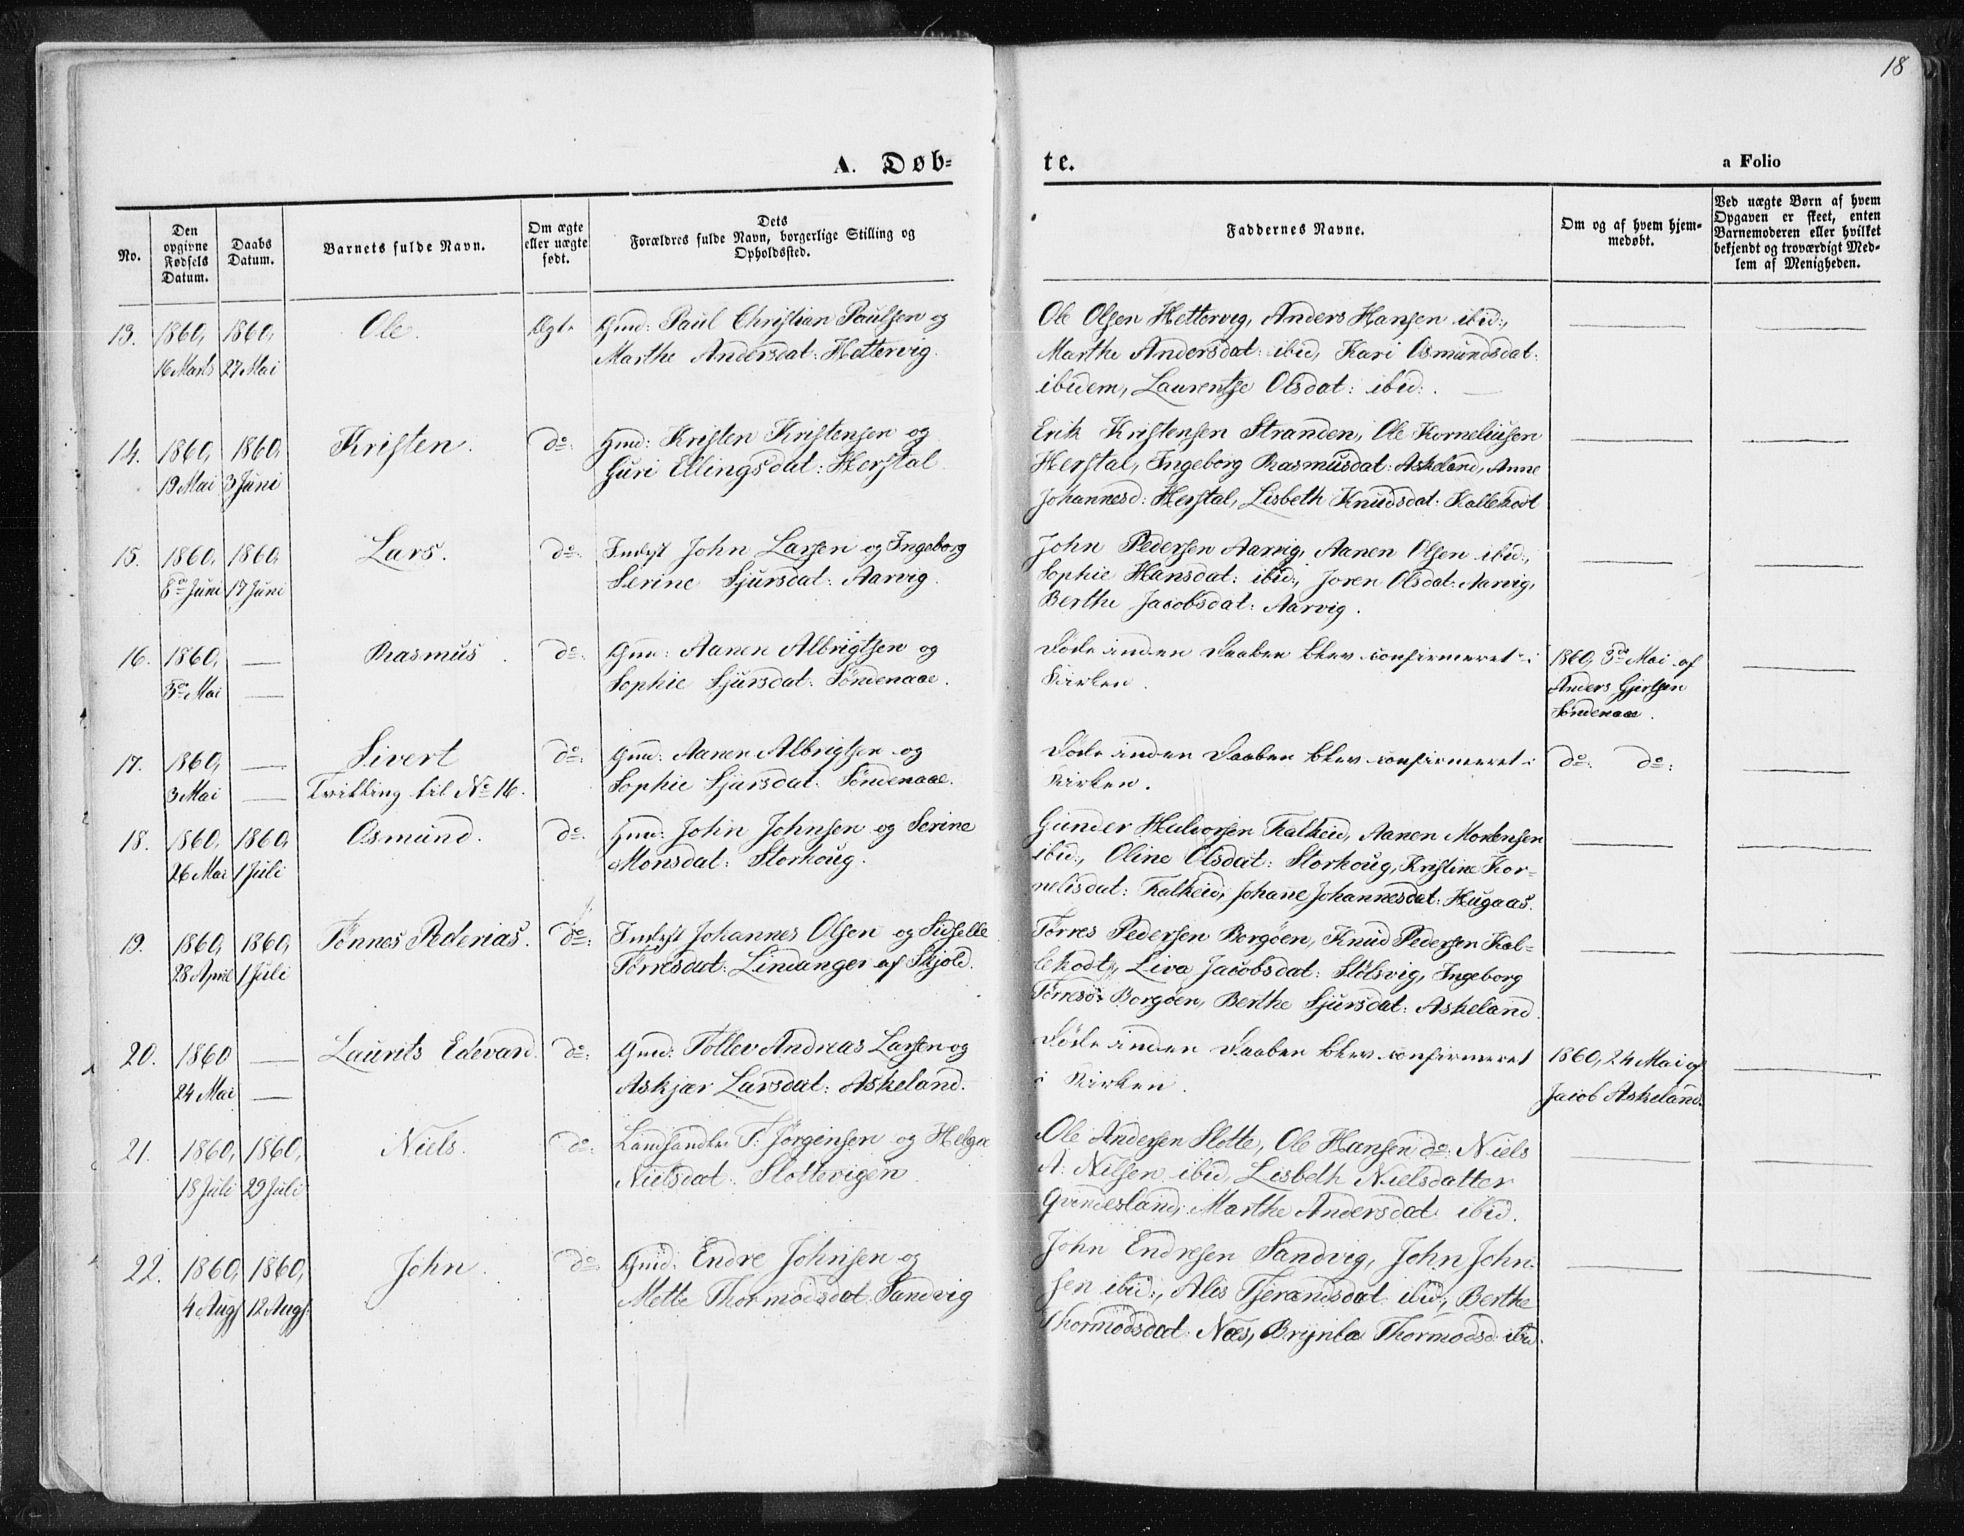 18
A. Døb-
te.
a Folio
No.
Den opgivne Fødsels Datum.
Daabs Datum.
Barnets fulde Navn.
Om ægte eller uægte født.
Dets Forældres fulde Navn, borgerlige Stilling og Opholdssted.
Faddernes Navne.
Om og af hvem hjem-medøbt.
Ved uægte Børn af hvem Opgaven er skeet, enten Barnemoderen eller hvilket bekjendt og troværdigt Med-lem af Menigheden.
13. 1860, 16 Marts 1860, 27 Mai Ole. Ægt.
Gmd: Paul Christian Paulsen og
Marthe Andersdat: Hettervig.
Ole Olsen Hettervig, Anders Hansen ibid:,
Marthe Andersdat: ibid, Kari Osmundsdat:
ibidem, Laurentse Olsdat: ibid:.
14. 1860, 19 Mai 1860, 3 Juni Kristen. do:
Gmd: Kristen Kristensen og
Guri Ellingsdat: Herstal.
Erik Kristensen Stranden, Ole Korneliusen
Herstal, Ingeborg Rasmusdat: Askeland, Anne
Johannesd: Herstal, Lisbeth Knudsdat: Kallekodt
15. 1860, 8de Juni 1860, 17 Juni Lars. do:
Inderst John Larsen og Ingeborg
Serine Sjursdat: Aarvig.
John Pedersen Aarvig, Aanen Olsen ibid:,
Sophie Hansdat: ibid:, Joren Olsdat: Aarvig,
Berthe Jacobsdat: Aarvig.
16. 1860, 3de Mai — Rasmus. do:
Gmd: Aanen Albrigtsen og
Sophie Sjursdat: Søndenaae.
Døde inden Daaben blev confirmeret i
Kirken.
1860, 3de Mai af
Anders Gjertsen
Søndenaae.
17. 1860, 3 Mai — Sivert
Tvilling til No 16. do:
Gmd: Aanen Albrigtsen og
Sophie Sjursdat: Søndenaae.
Døde inden Daaben blev confirmeret i
Kirken.
do: do:
18. 1860, 26 Mai 1860, 1 Juli Osmund. do:
Gmd: John Johnsen og Serine
Monsdat: Storhoug.
Gunder Halvorsen Falkeid, Aanen Mortensen
ibid:, Oline Olsdat: Storhoug, Kristine Kor-
nelisdat: Falkeid, Johane Johannesdat: Hugaas.
19. 1860, 28 April 1860, 1 Juli Tønnes Pederias. do:
Inderst Johannes Olsen og Sidselle
Tørresdat: Lindanger af Skjold.
Tørres Pedersen Borgøen, Knud Pedersen Kal-
lekodt, Liva Jacobsdat: Stølsvig, Ingeborg
Borgøen, Berthe Sjursdat: Askeland.
20. 1860 24 Mai — Laurits Edevard. do:
Gmd: Tollev Andreas Larsen og
Askjær Larsdat: Askeland.
Døde inden Daaben blev confirmeret
i Kirken.
1860, 24 Mai af
Jacob Askeland.
21. 1860, 18 Juli 1860, 29 Juli Niels. do:
Landhandler T: Jørgensen og Helga
Nielsdat: Slottevigen.
Ole Andersen Slotte, Ole Hansen do: Niels
A: Nilsen ibid, Lisbeth Nielsdatter
Qvindesland, Marthe Andersdat ibid.
22. 1860, 4 Augs 1860, 12 Augs John. do:
Gmd: Endre Johnsen og
Mette Thormodsdat Sandvig
John Endresen Sandvig, John John-
sen ibid:, Alis Tjerandsdat ibid:, Berthe
Thormodsdat: Næs, Brynla Thormodsd ibid.